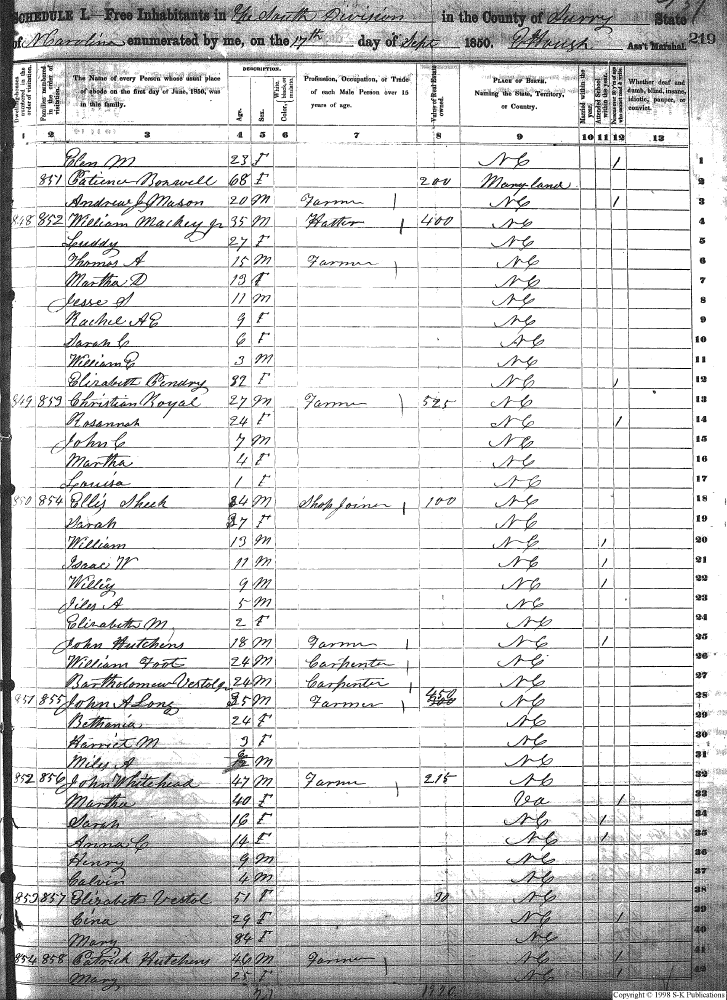 SCHEDULE I.—Free Inhabitants in The South Division in the County of Surry State
of N Carolina enumerated by me, on the 17th day of Sept 1850. Ass't Marshal. 219
Dwelling-houses numbered in the order of visitation.
Families numbered in the order of visitation.
The Name of every Person whose usual place of abode on the first day of June, 1850, was in this family.
DESCRIPTION.
Age.
Sex.
Color,
Profession, Occupation, or Trade of each Male Person over 15 years of age.
Value of Real Estate owned.
PLACE OF BIRTH. Naming the State, Territory, or Country.
Married within the year.
Attended School within the year.
Whether deaf and dumb, blind, insane, idiotic, pauper, or convict.
1 2 3 4 5 6 7 8 9 10 11 12 13
Elen M 23 F NC 1 1
851 Patience Boxwell 68 F 200 Maryland 2
Andrew J Mason 20 M Farmer NC 1 3
848 852 William Mackey Jr 35 M Hatter 400 NC 4
Luddy 27 F NC 5
Thomas A 15 M Farmer NC 6
Martha D 13 F NC 7
Jesse 11 M NC 8
Rachel A E 9 F NC 9
Sarah C 6 F NC 10
William C 3 M NC 11
Elizabeth 32 F NC 1 12
849 853 Christian Royal 27 M Farmer 525 NC 13
Rosannah 24 F NC 1 14
John C 7 M NC 15
Martha 4 F NC 16
Louisa 1 F NC 17
850 854 Ellis Sheek 34 M Shop Joiner 100 NC 18
Sarah 37 F NC 19
William 13 M NC 1 20
Isaac W 11 M NC 1 21
Willey 9 M NC 1 22
Jiles A 5 M NC 23
Elizabeth M 2 F NC 24
John Hutchens 18 M Farmer NC 1 25
William Foot 24 M Carpenter NC 26
Bartholomew Vestol Jr 24 M Carpenter NC 27
851 855 John A Long 25 M Farmer 450 NC 28
Bethania 24 F NC 29
Harriet M 3 F NC 30
Miles A M NC 31
852 856 John Whitehead 47 M Farmer 215 NC 32
Martha 40 F Va 1 33
Sarah 16 F NC 1 34
Anna C 14 F NC 1 35
Henry 9 M NC 36
Calvin 4 M NC 37
853 857 Elizabeth Vestol 51 F 30 NC 38
Cina 29 F NC 1 39
Mary 84 F NC 40
854 858 Patrick Hutchens 46 M Farmer NC 1 41
Mary 25 F NC 1 42
Copyright © 1998 S-K Publications